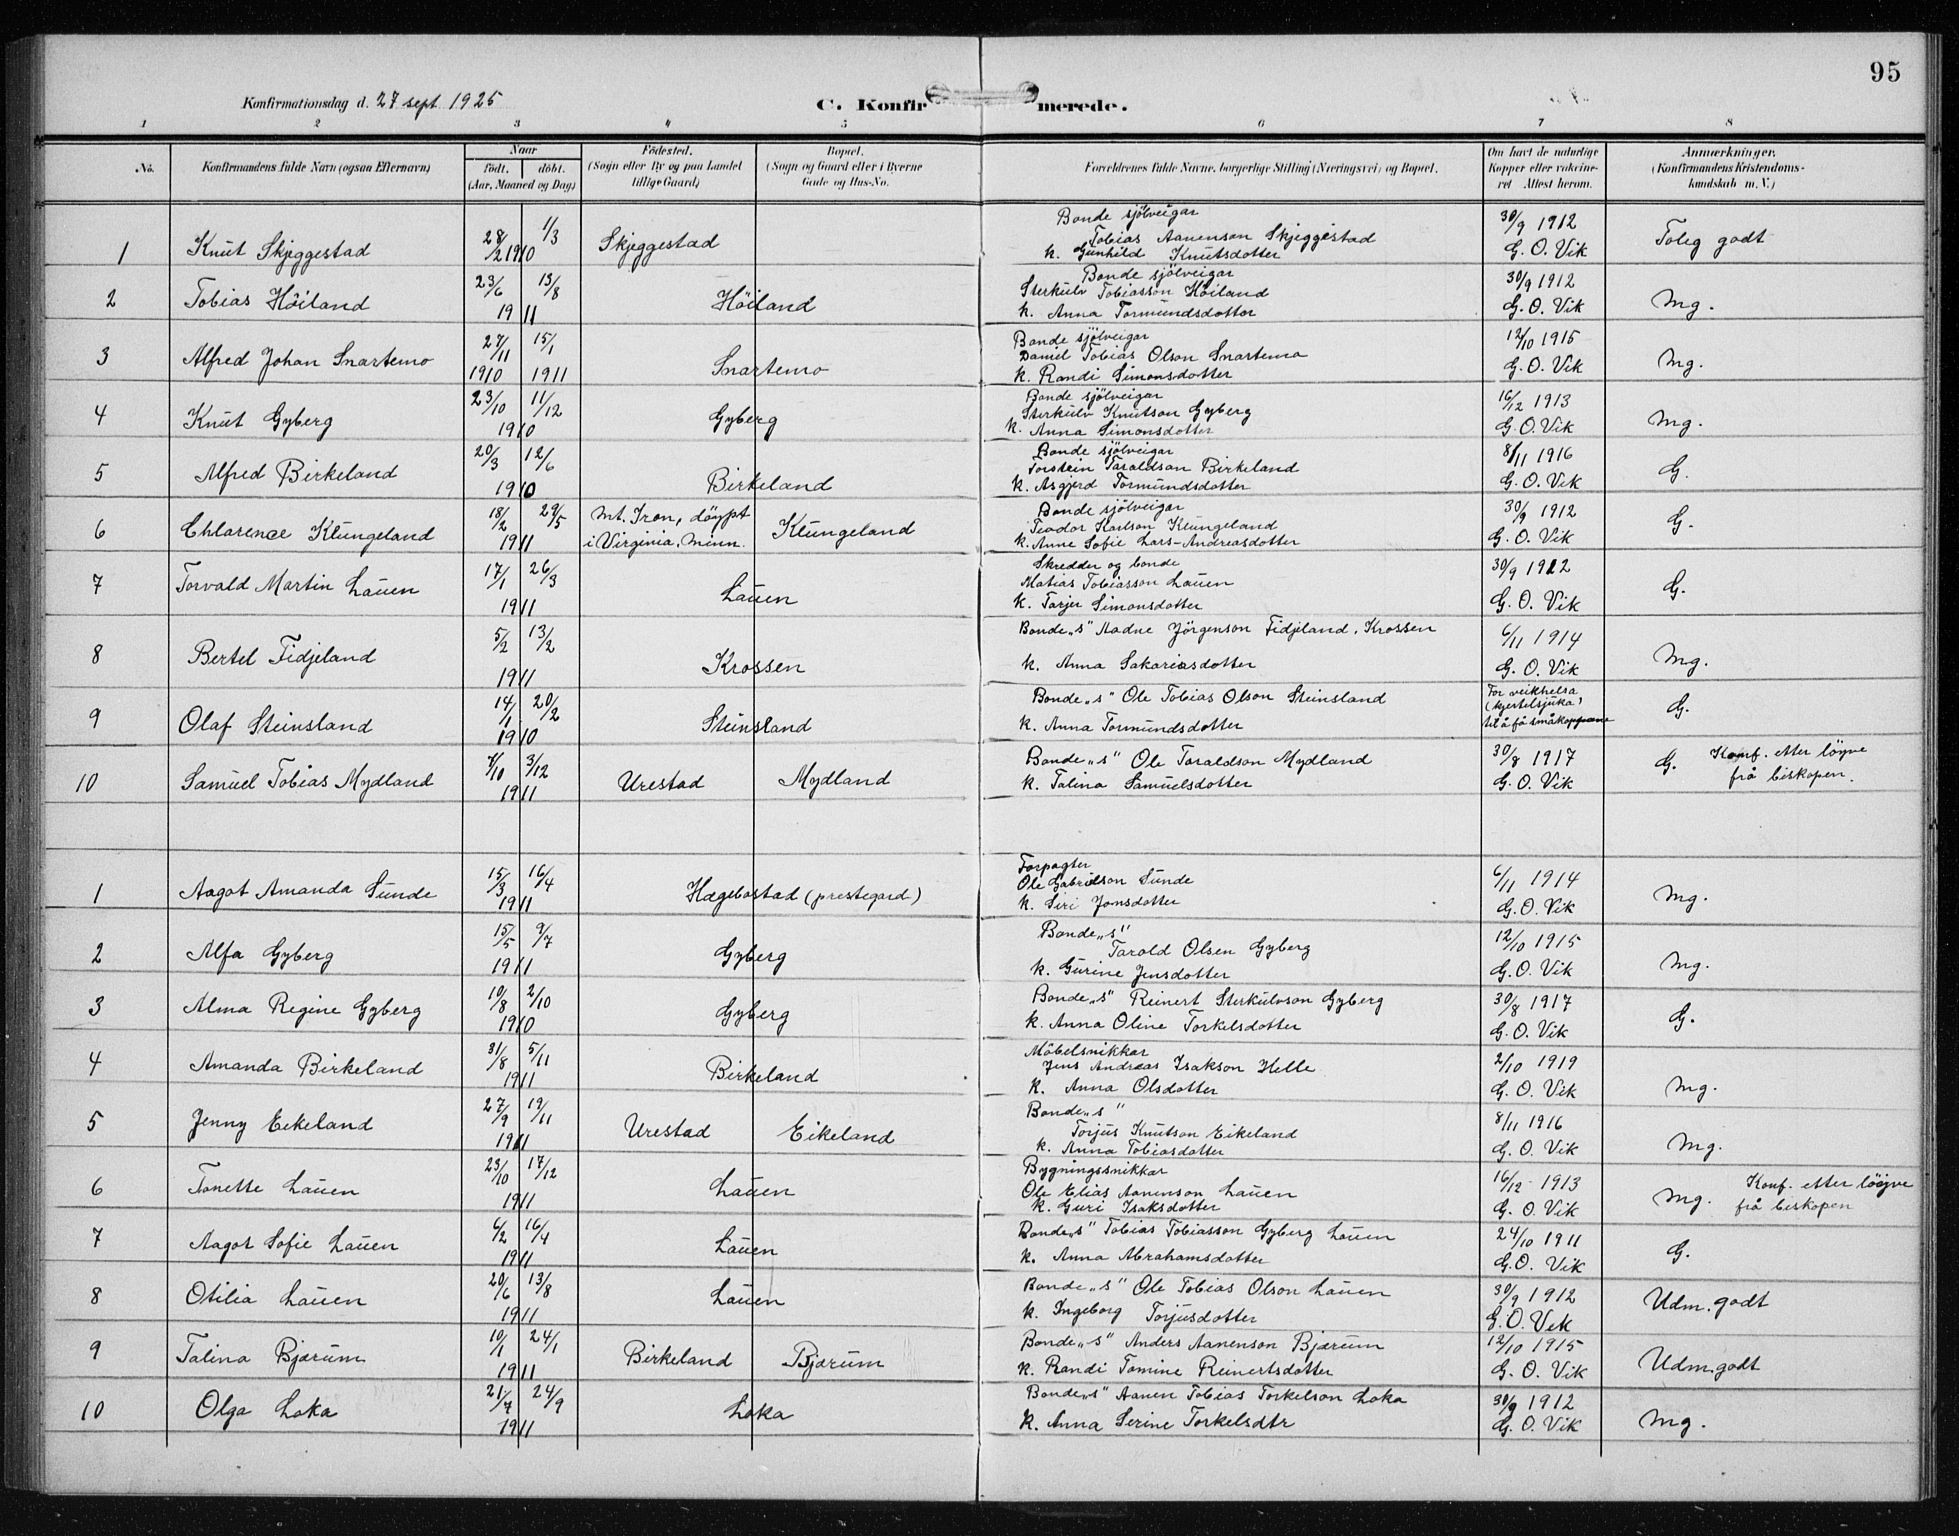 95
Konfirmationsdag d. 27 sept. 1925
C. Konfirmerede.
1 2 3 4 5 6 7 8
No. Konfirmandens fulde Navn (ogsaa Efternavn) Naar Födested. Bopæl. Forældrenes fulde Navne, borgerlige Stilling (Næringsvei) og Bopæl. Om havt de naturlige Anmærkninger.
födt. döbt. (Sogn eller By og paa Landet (Sogn og Gaard eller i Byerne Kopper eller vakcine- (Konfirmandens Kristendoms-
(Aar, Maaned og Dag) tillige Gaard) Gade og Hus-No. ret Attest herom. kundskab m. V.)
Bonde sjölveigar
1 Knut Skjeggestad 28/2 1910 1/3 Skjeggestad Tobias Aanenson Skjeggestad 30/9 1912 Toleg godt
k. Gunhild Knutsdotter G. O. Vik
Bonde sjölveigar
2 Tobias Höiland 23/6 13/8 Höiland Sterkulv Tobiasson Höiland 30/9 1912 Mg.
1911 k. Anna Tormundsdotter G. O. Vik
Bonde sjölveigar
3 Alfred Johan Snartemo 27/11 15/1 Snartemo Daniel Tobias Olson Snartemo 12/10 1915 Mg.
1910 1911 k. Randi Simonsdotter G. O. Vik
Bonde sjölveigar
4 Knut Gyberg 23/10 11/12 Gyberg Sterkulv Knutson Gyberg 16/12 1913 Mg.
1910 k. Anna Simonsdotter G. O. Vik
Bonde sjölveigar
5 Alfred Birkeland 20/3 12/6 Birkeland Torstein Taraldson Birkeland 8/11 1916 G.
1910 k. Asgjerd Tormundsdotter G. O. Vik
Bonde sjölveigar
6 Chlarence Klungeland 18/2 29/5 Mt. Iron, döypt Klungeland Teodor Karlson Klungeland 30/9 1912 G.
1911 i Virginia, Minn. k. Anne Sofie Lars-Andreasdotter G. O. Vik
Skredder og bonde
7 Torvald Martin Lauen 17/1 26/3 Lauen Matias Tobiasson Lauen 30/9 1912 G.
1911 k. Tarjer Simonsdotter G. O. Vik
8 Bertel Fidjeland 5/2 13/2 Krossen Bonde „s" Aadne Jörgenson Fidjeland, Krossen 6/11 1914 Mg.
1911 k. Anna Sakariasdotter G. O. Vik
9 Olaf Steinsland 14/1 20/2 Steinsland Bonde „s" Ole Tobias Olson Steinsland For veikhelsa G.
1910 k. Anna Tormundsdotter (kjertelsjuka)
til å få småkoppane
10 Samuel Tobias Mydland 3/12 Urestad Mydland Bonde „s" Ole Taraldson Mydland 30/8 1917 G. Konf. etter löyve
1911 k. Talina Samuelsdotter G. O. Vik frå biskopen.
Forpagter
1 Aagot Amanda Sunde 15/3 16/4 Hægebostad (prestegard) Ole Gabrielson Sunde 6/11 1914 Mg.
1911 k. Siri Jonsdotter G. O. Vik
Bonde „s"
2 Alfa Gyberg 15/5 9/7 Gyberg Tarald Olsen Gyberg 12/10 1915 Mg.
1911 k. Gurine Jensdotter G. O. Vik
3 Alma Regine Gyberg 10/8 2/10 Gyberg Bonde „s" Reinert Sterkulvson Gyberg 30/8 1917 G.
1910 k. Anna Oline Torkelsdotter G. O. Vik
Möbelsnikkar
4 Amanda Birkeland 31/8 5/11 Birkeland Jens Andreas Isakson Helle 2/10 1919 Mg.
1911 k. Anna Olsdotter G. O. Vik
Bonde „s"
5 Jenny Eikeland 27/9 19/11 Urestad Eikeland Torjus Knutson Eikeland 8/11 1916 Mg.
1911 k. Anna Tobiasdotter G. O. Vik
Bygningssnikkar
6 Tonette Lauen 23/10 17/12 Lauen Ole Elias Aanenson Lauen 16/12 1913 Mg. Konf. etter löyve
1911 k. Guri Isaksdotter G. O. Vik frå biskopen
7 Aagot Sofie Lauen 6/2 16/4 Lauen Bonde „s" Tobias Tobiasson Gyberg Lauen 24/10 1911 G.
1911 k. Anna Abrahamsdotter G. O. Vik
8 Otilia Lauen 20/6 13/8 Lauen Bonde „s" Ole Tobias Olson Lauen 30/9 1912 Udm. godt
1911 k. Ingeborg Torjusdotter G. O. Vik
9 Talina Bjærum 10/1 24/1 Birkeland Bjærum Bonde „s" Anders Aanenson Bjærum 12/10 1915 Udm. godt
1911 k. Randi Tomine Reinertsdotter G. O. Vik
10 Olga Loka 21/7 24/9 Loka Bonde „s" Aanen Tobias Torkelson Loka 30/9 1912 Mg.
1911 k. Anna Serine Torkelsdtr G. O. Vik